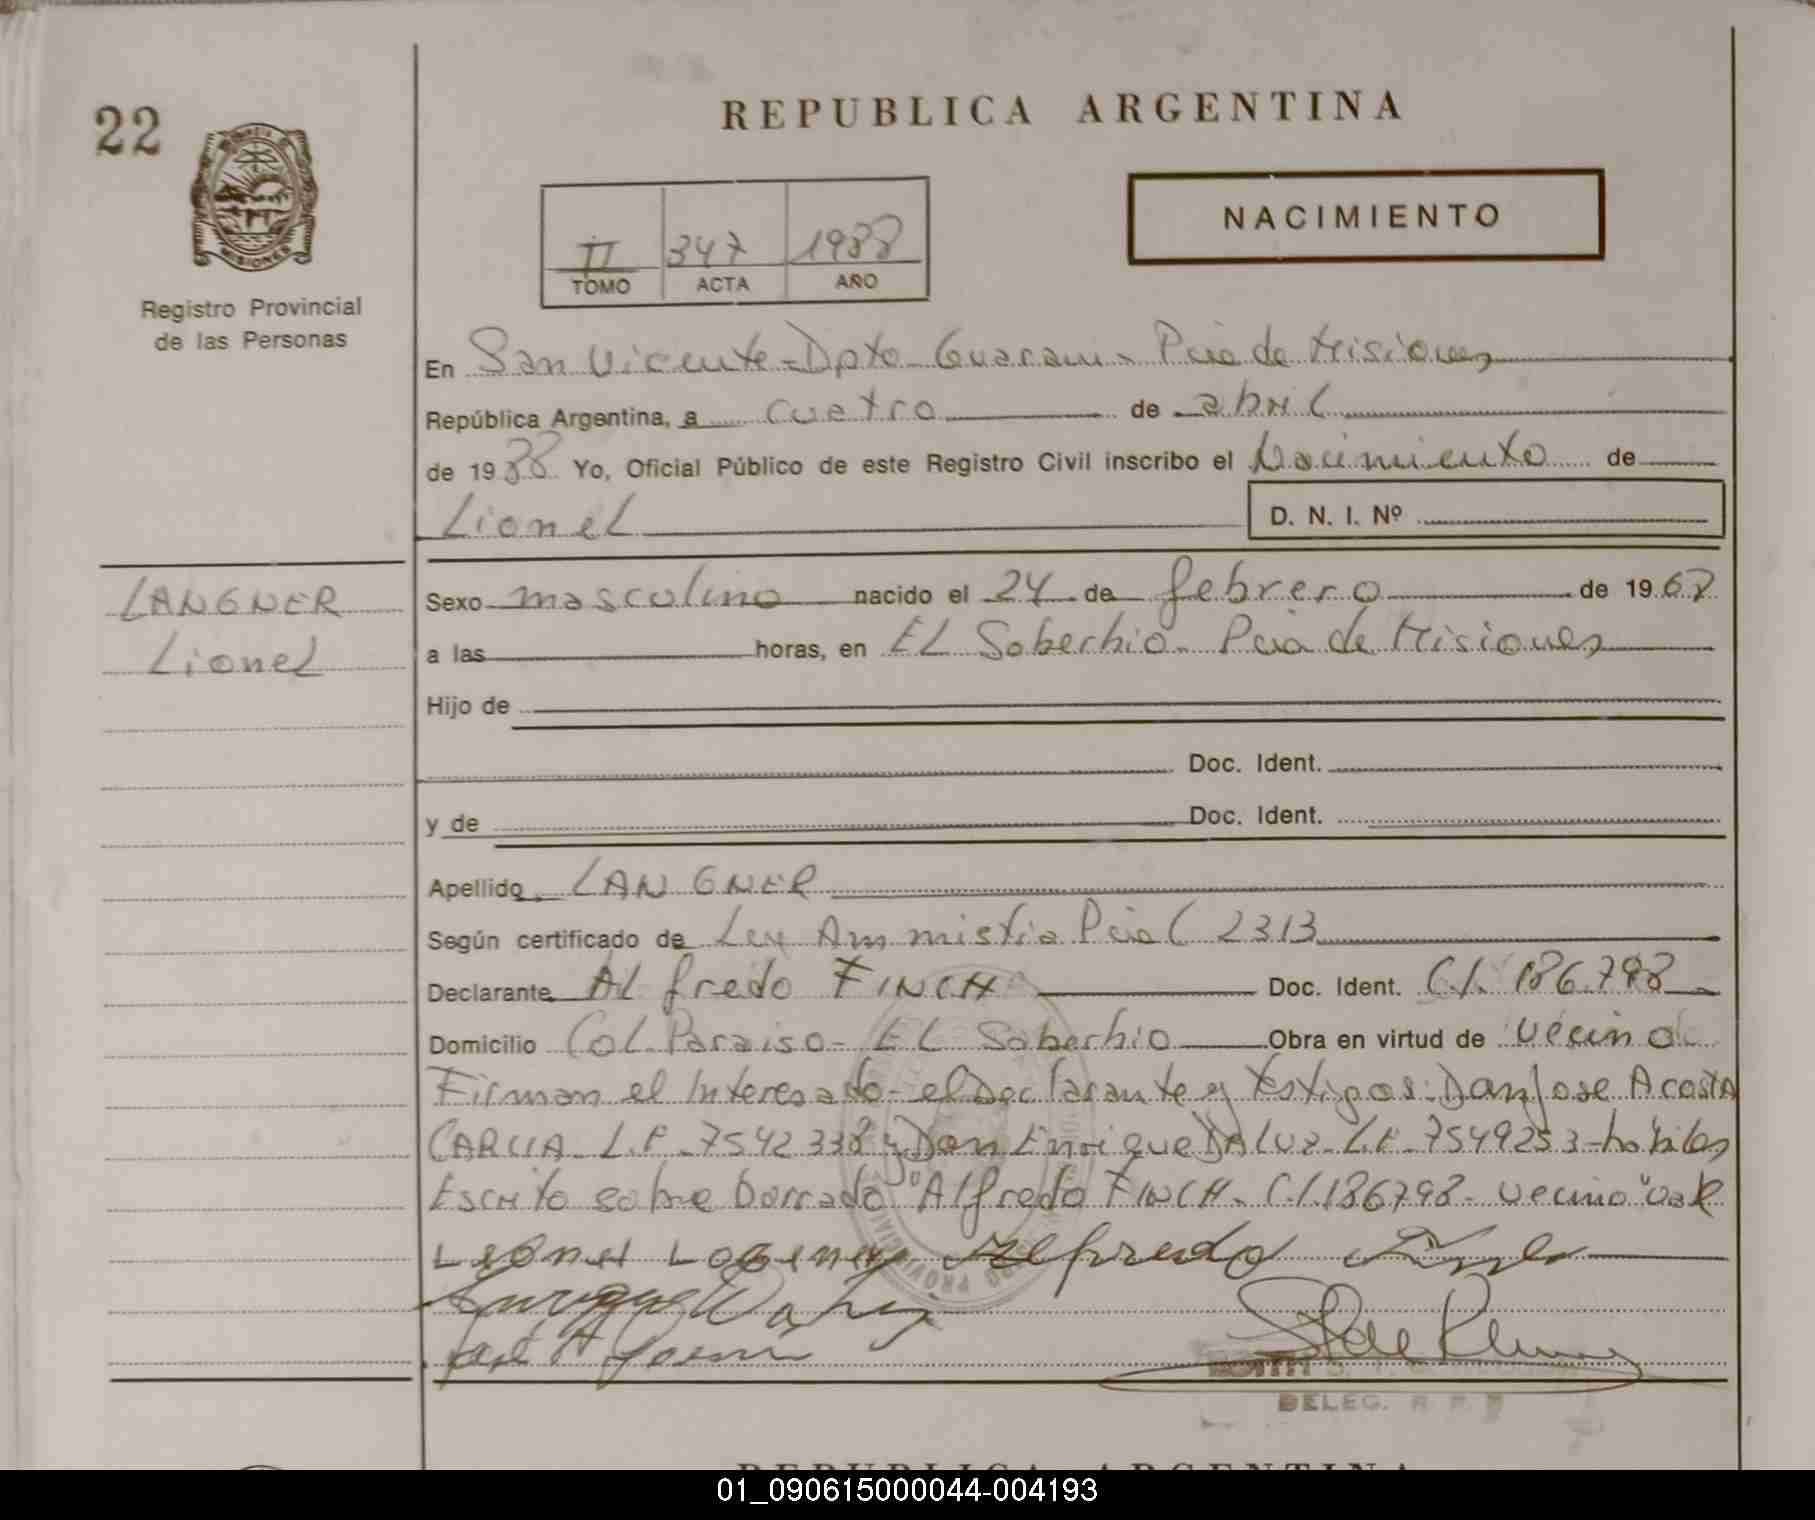 22
REPUBLICA ARGENTINA
NACIMIENTO
II 347 1988
TOMO ACTA AÑO
MISIONES
Registro Provincial
de las Personas
En San Vicente - Dpto - Guarani - Pcia de Misiones
República Argentina, a cuatro de abril
de 1988 Yo, Oficial Público de este Registro Civil inscribo el Nacimiento de
Lionel D. N. I. Nº
LANGNER
Lionel
Sexo masculino nacido el 24 de febrero de 196
a las horas, en EL Soberbio - Pcia de Misiones
Hijo de
Doc. Ident.
y de Doc. Ident.
Apellido LANGNER
Según certificado de Ley Ammistia Pcial 2313
Declarante Alfredo FINCH Doc. Ident. C.I. 186.798
Domicilio Col. Paraiso - EL Soberbio Obra en virtud de vecino
Firman el Interesado - el Declarante y testigos: Don Jose Acosta
GARCIA - L.E. 7542338 y Don Enrique DA LUZ - L.E. 7549253 - habiles
Escrito sobre borrado "Alfredo FINCH - C.I. 186798 - vecino" vale
Alfredo
DELEG. R. P.
REPUBLICA ARGENTINA
01_090615000044-004193